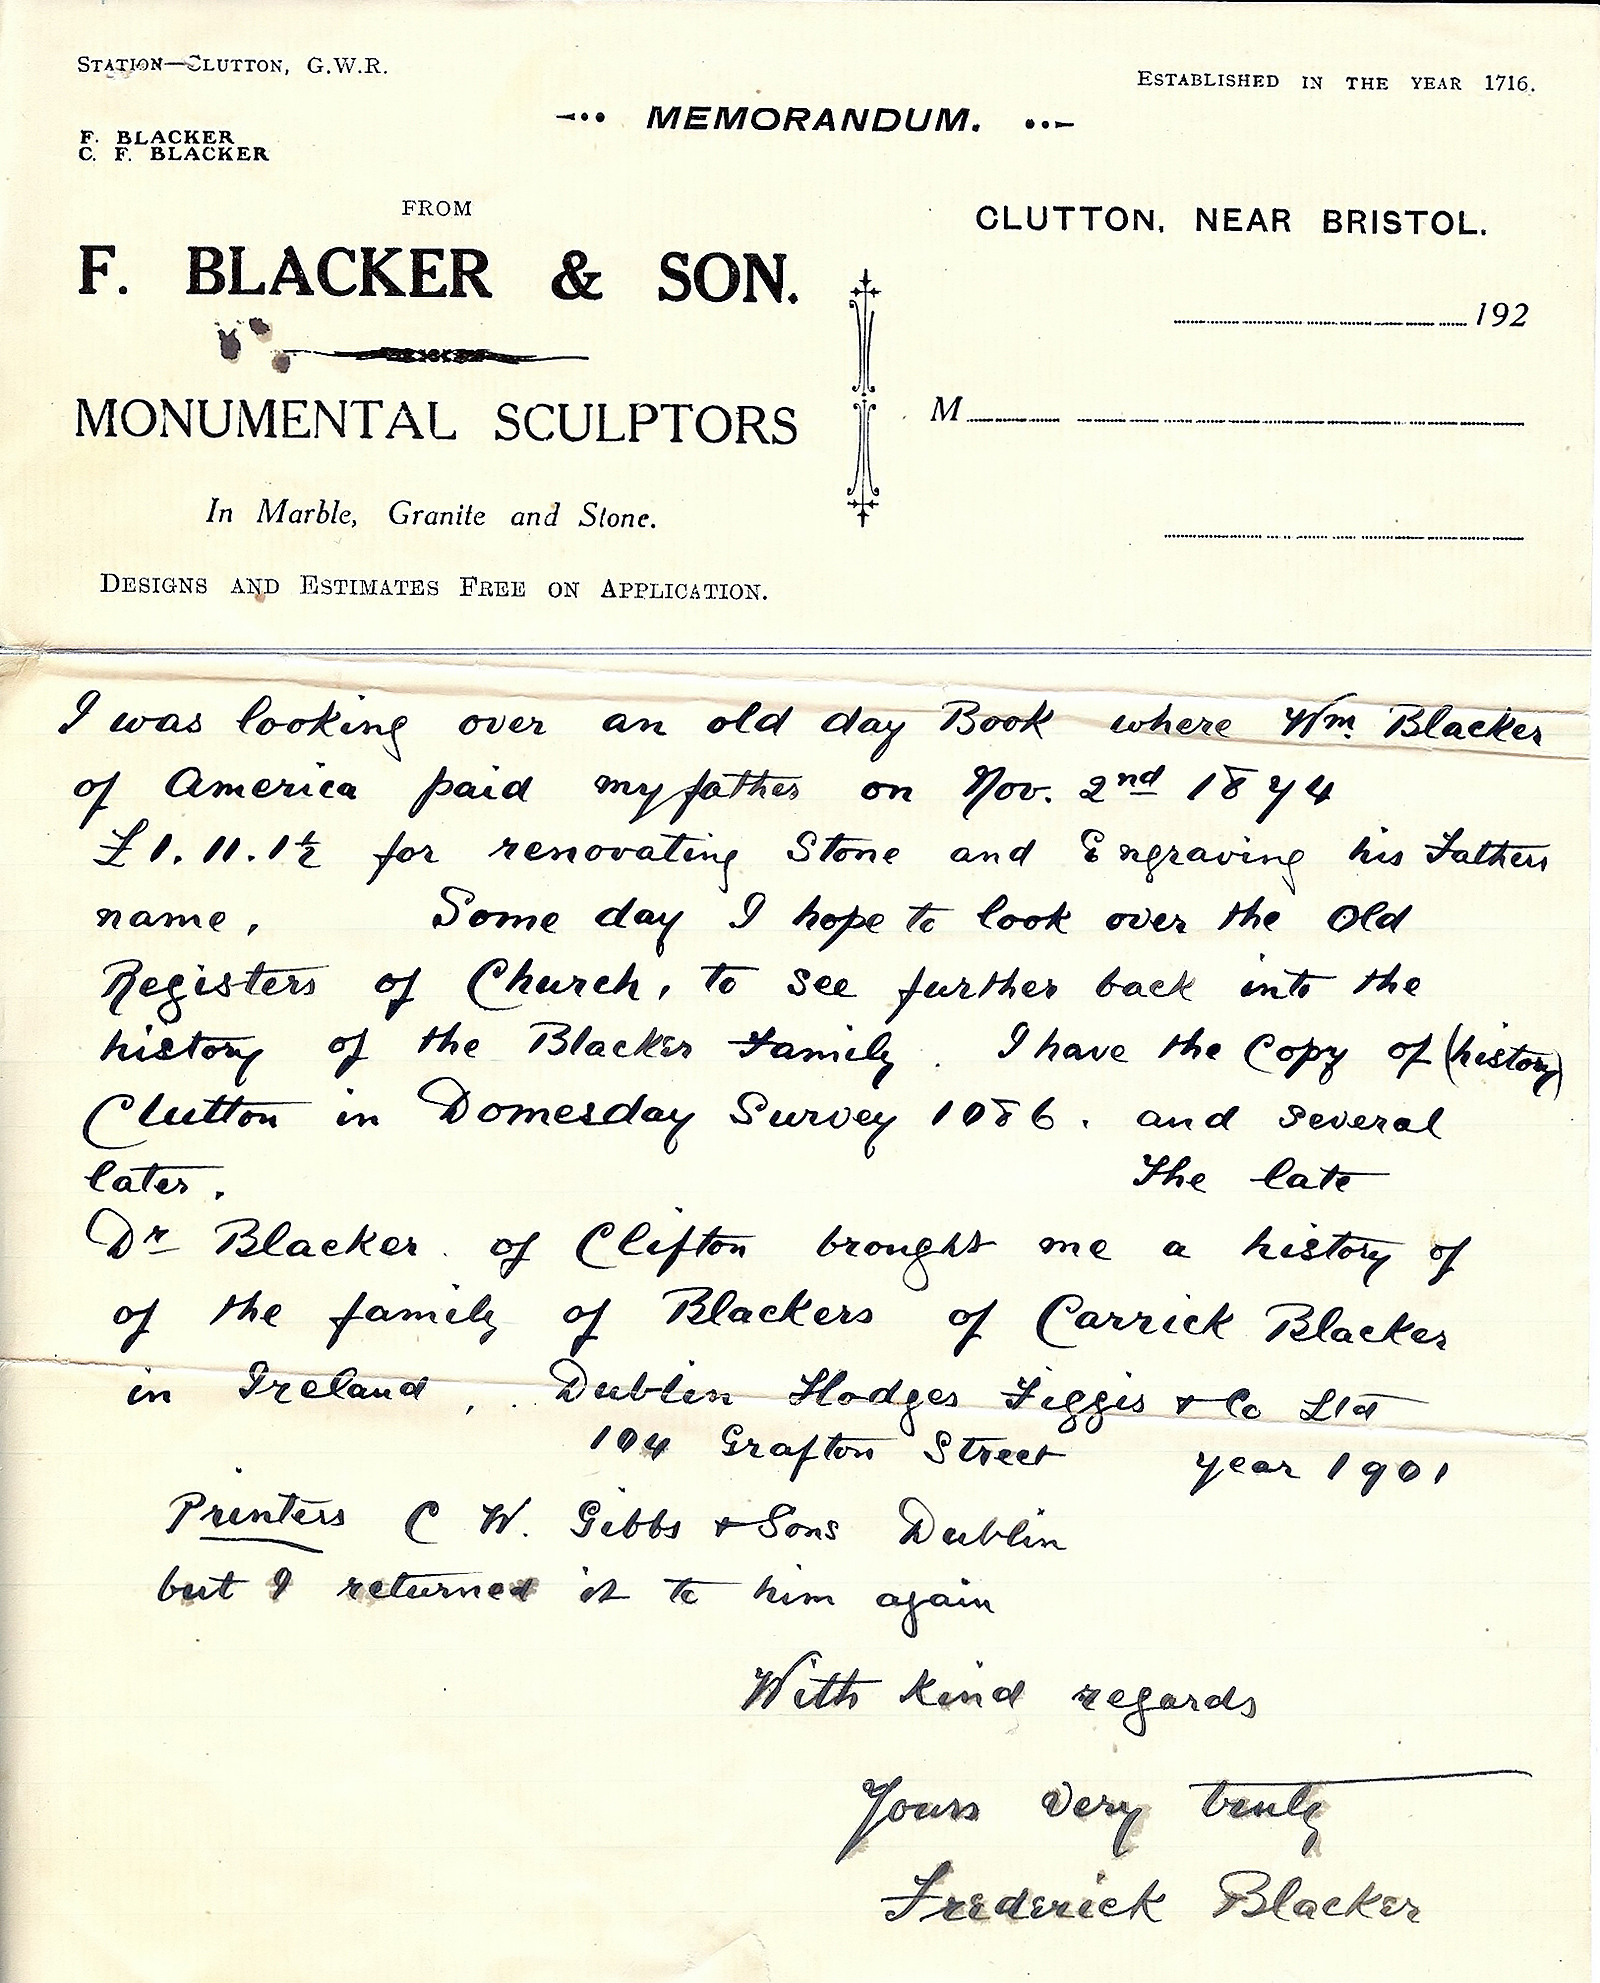 STATION—CLUTTON, G.W.R.
ESTABLISHED IN THE YEAR 1716.
MEMORANDUM.
F. BLACKER
C. F. BLACKER
FROM
CLUTTON, NEAR BRISTOL.
F. BLACKER & SON.
192
MONUMENTAL SCULPTORS
M
In Marble, Granite and Stone.
DESIGNS AND ESTIMATES FREE ON APPLICATION.
I was looking over an old day Book where Wm. Blacker
of America paid my father on Nov. 2nd 1874
£1.11.1½ for renovating Stone and Engraving his Fathers
name, Some day I hope to look over the Old
Registers of Church, to see further back into the
history of the Blacker Family. I have the Copy of (history)
Clutton in Domesday Survey 1086. and several
later. The late
Dr Blacker. of Clifton brought me a history of
of the family of Blackers of Carrick Blacker
in Ireland, . Dublin Hodges Figgis & Co Ltd
104 Grafton Street year 1901
Printers C W. Gibbs & Sons Dublin
but I returned it to him again
With kind regards
Yours very truly
Frederick Blacker